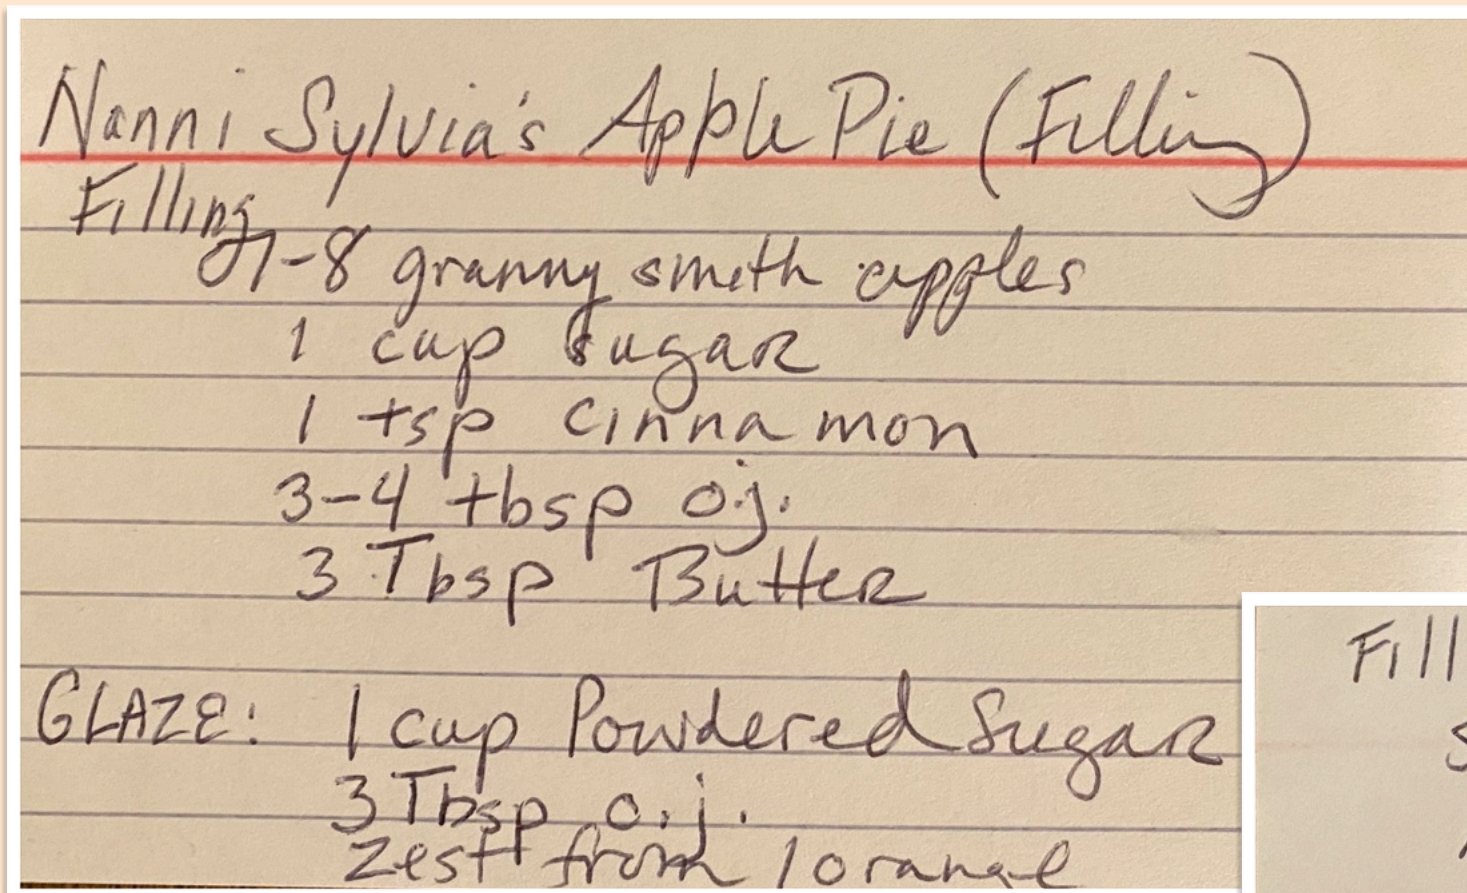 Nanni Sylvia's Apple Pie (Filling)
Filling
7-8 granny smith apples
1 cup sugar
1 tsp cinnamon
3-4 tbsp o.j.
3 Tbsp Butter
GLAZE: 1 cup Powdered Sugar
3 Tbsp o.j.
zest from 1 orange
Fill